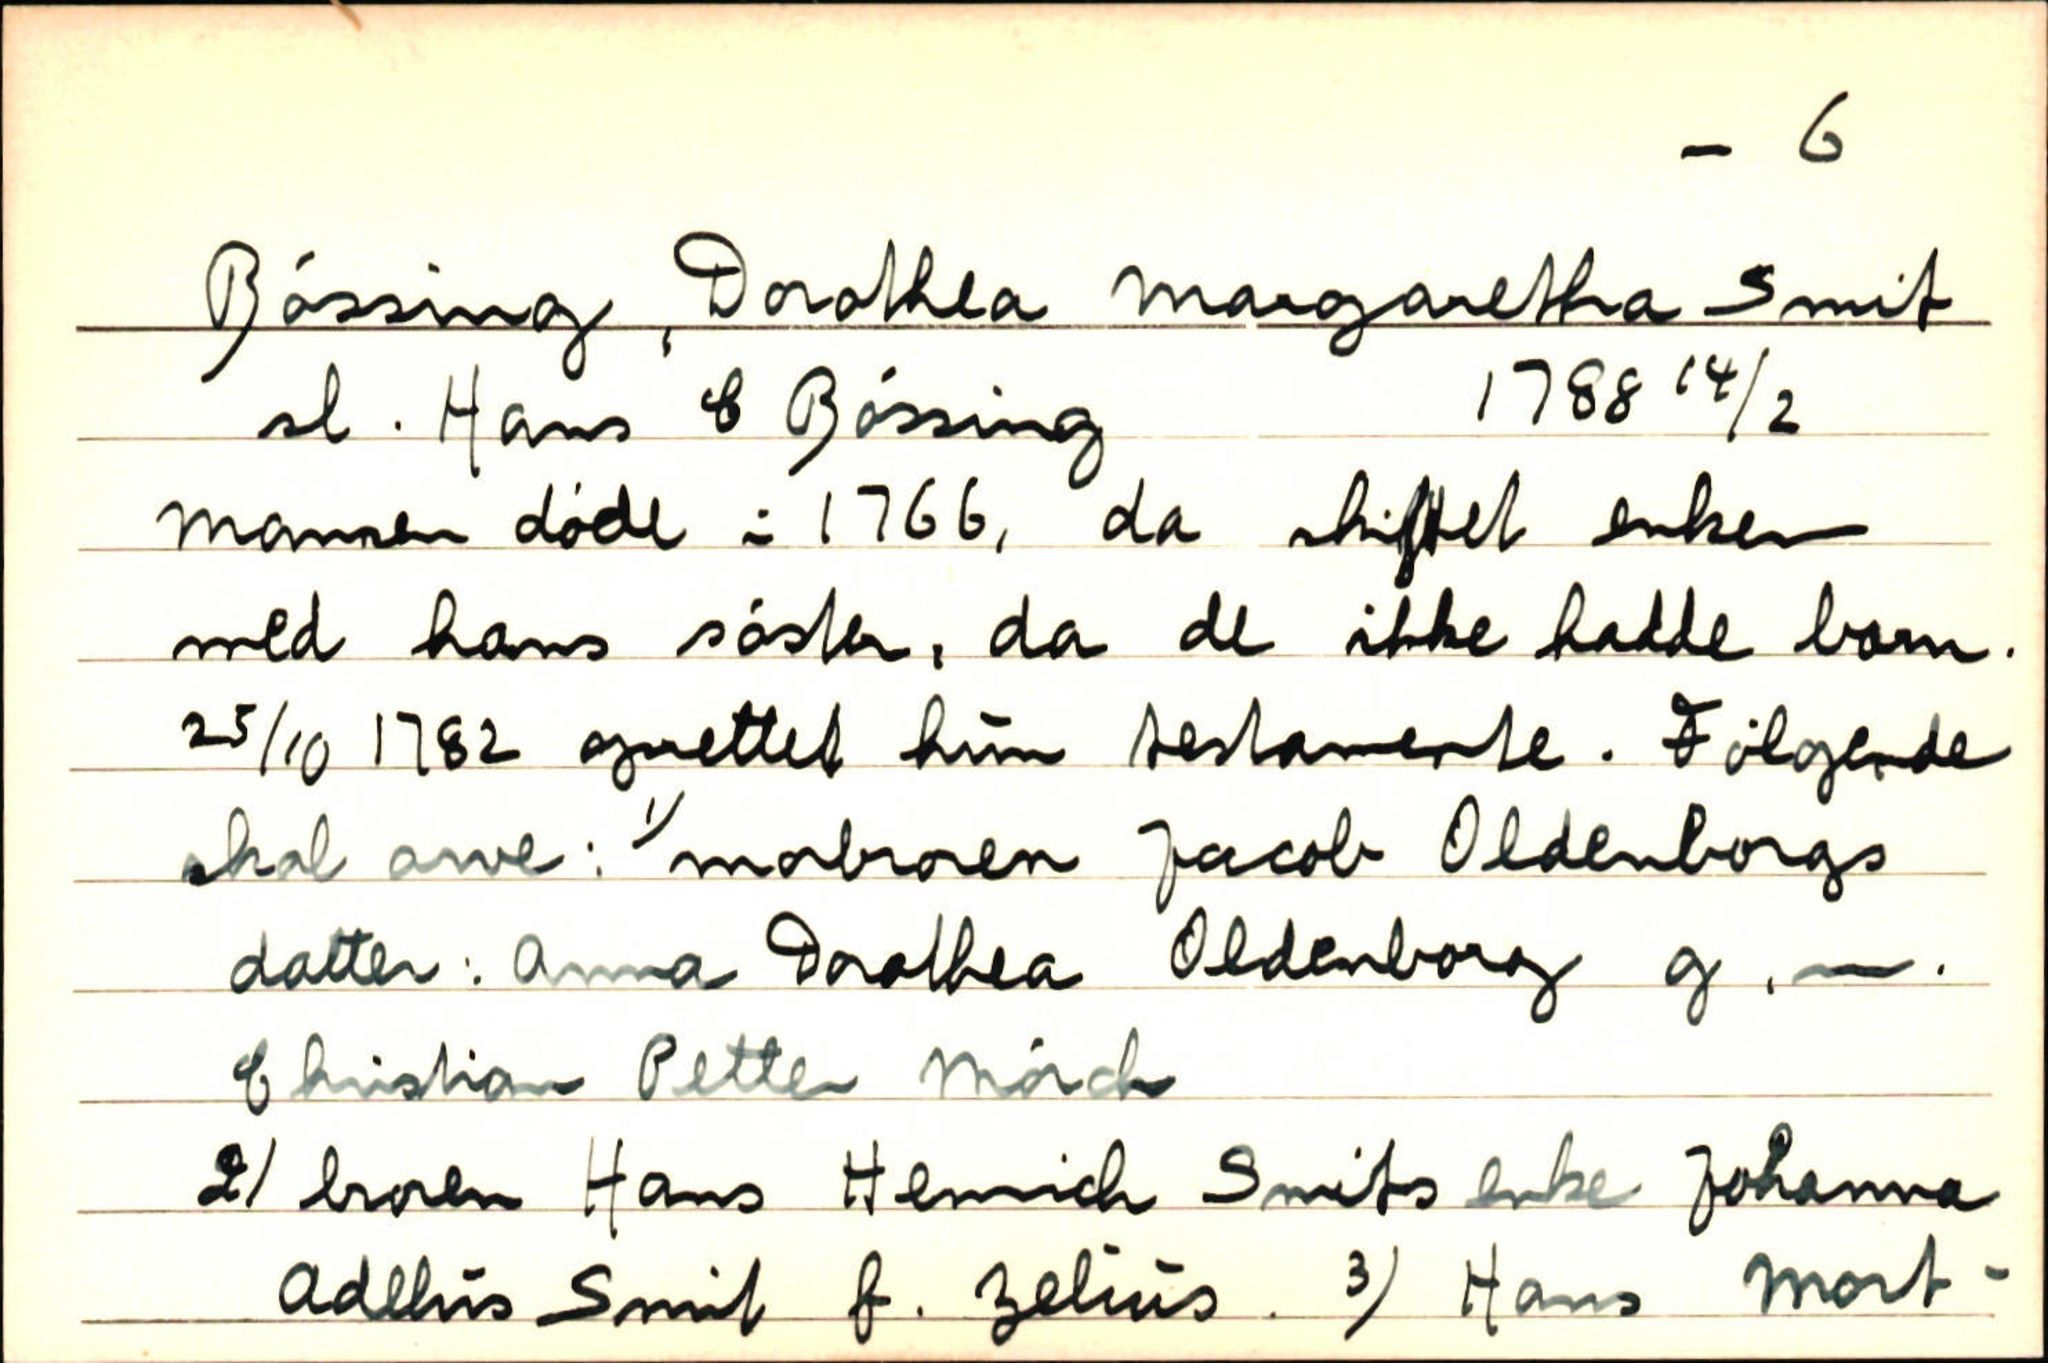 - 6
Bóssing, Dorothea Margaretha Smit
sl. Hans C Bóssing 1788 14/2
Mannen døde i 1766, da skiftet enken
med hans sóster, da de ikke hadde barn.
25/10 1782 oprettet hun testamente. Følgende
skal arve: 1) morbroren Jacob Oldenborgs
datter: Anna Dorothea Oldenborg g. m.
Christian Petter Mórch
2) broren Hans Henrich Smits enke Johanna
Adelus Smit f. Zelius. 3) Hans Mort-